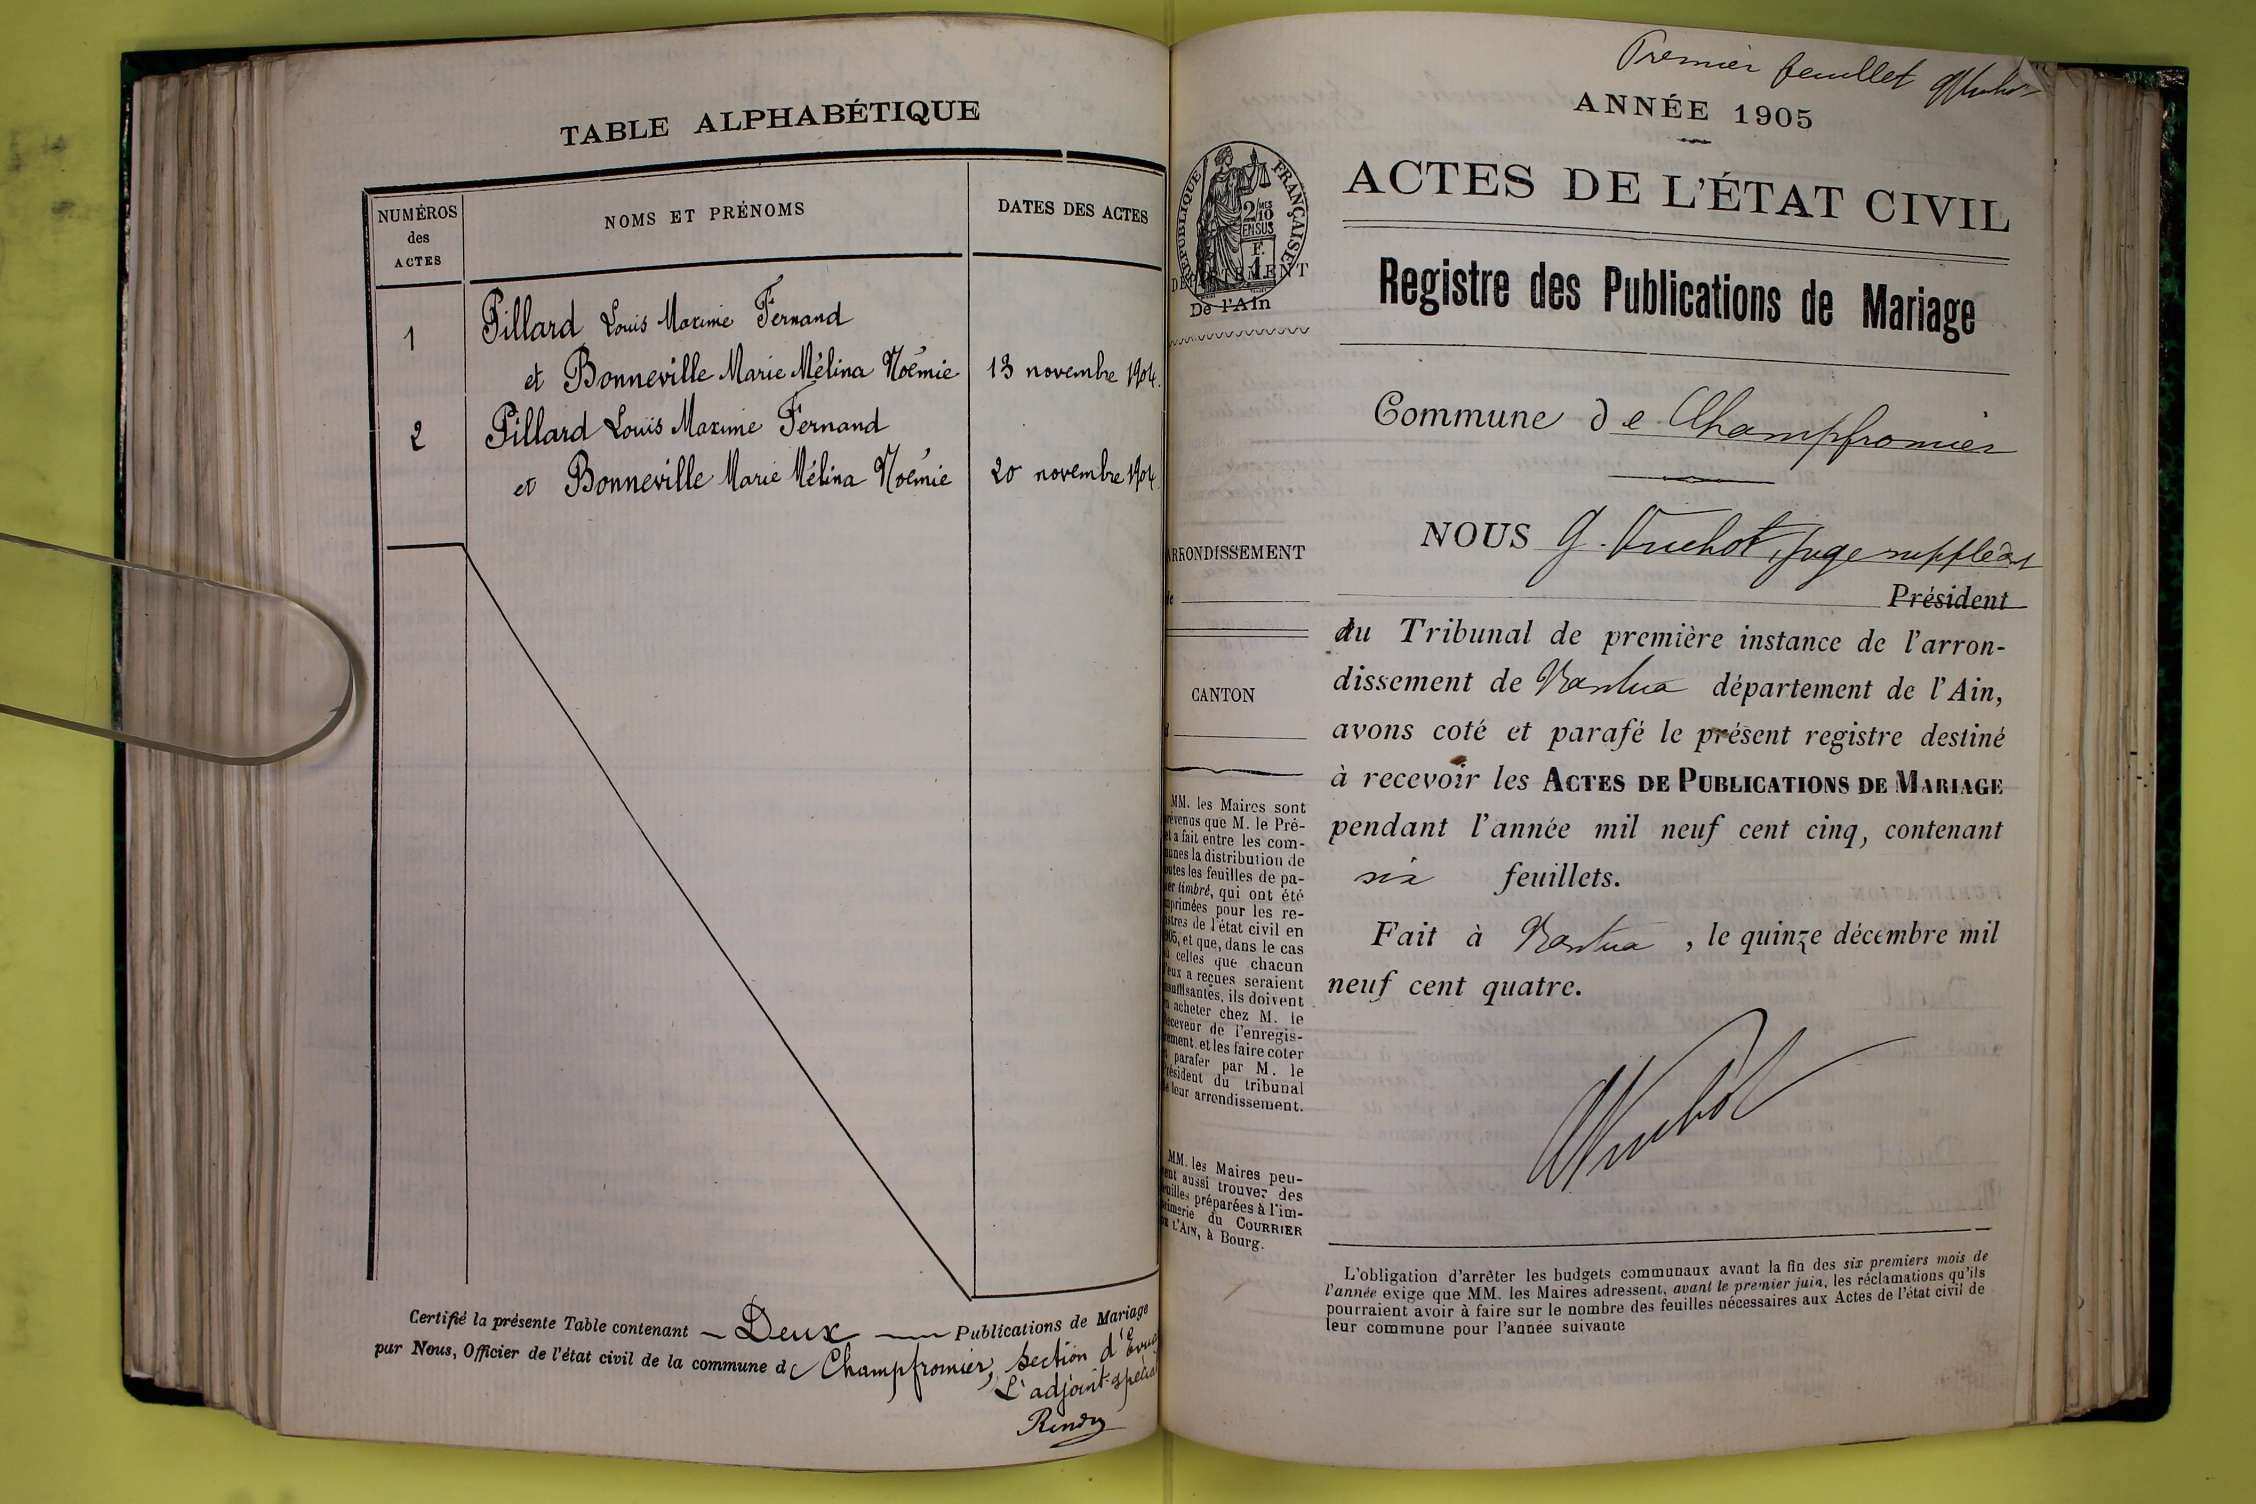 TABLE ALPHABÉTIQUE
NUMÉROS
des
ACTES
NOMS ET PRÉNOMS
DATES DES ACTES
1
Pillard Louis Maxime Fernand
et Bonneville Marie Mélina Noémie
13 novembre 1904.
2
Pillard Louis Maxime Fernand
et Bonneville Marie Mélina Noémie
20 novembre 1904.
Certifié la présente Table contenant Deux Publications de Mariage
par Nous, Officier de l'état civil de la commune de Champfromier, section d'
L'adjoint
Premier feuillet
ANNÉE 1905
ACTES DE L'ÉTAT CIVIL
RÉPUBLIQUE FRANÇAISE
2/10
MES
EN SUS
F.
1
DÉPARTEMENT
De l'Ain
Registre des Publications de Mariage
Commune de Champfromier
NOUS G. Vuchot, Juge suppléant
Président
du Tribunal de première instance de l'arron-
dissement de Nantua département de l'Ain,
avons coté et parafé le présent registre destiné
à recevoir les ACTES DE PUBLICATIONS DE MARIAGE
pendant l'année mil neuf cent cinq, contenant
six feuillets.
Fait à Nantua, le quinze décembre mil
neuf cent quatre.
ARRONDISSEMENT
de
CANTON
d
MM. les Maires sont
prévenus que M. le Pré-
et a fait entre les com-
munes la distribution de
toutes les feuilles de pa-
pier timbré, qui ont été
imprimées pour les re-
gistres de l'état civil en
1905, et que, dans le cas
où celles que chacun
d'eux a reçues seraient
insuffisantes, ils doivent
en acheter chez M. le
Receveur de l'enregis-
trement, et les faire coter
et parafer par M. le
Président du tribunal
de leur arrondissement.
MM. les Maires peu-
vent aussi trouver des
feuilles préparées à l'im-
primerie du COURRIER
DE L'AIN, à Bourg.
L'obligation d'arrêter les budgets communaux avant la fin des six premiers mois de
l'année exige que MM. les Maires adressent, avant le premier juin, les réclamations qu'ils
pourraient avoir à faire sur le nombre des feuilles nécessaires aux Actes de l'état civil de
leur commune pour l'année suivante